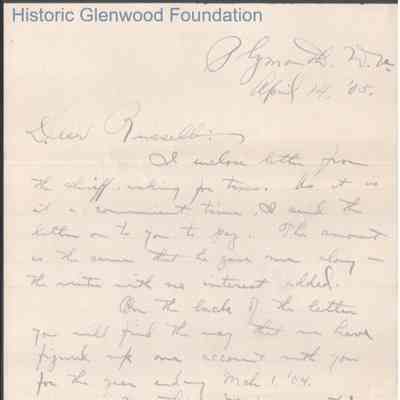 Historic Glenwood Foundation
Plymouth, W. Va
April 14, '05.
Dear Russell:
I inclose letter from
the sheriff asking for taxes. As it is
at a convenient time, I send the
letter on to you to pay. The amount
is the same that he gave me along in
the winter with no interest added.
On the back of the letter
you will find the way that we have
figured up our account with you
for the year ending Mch 1, '04.